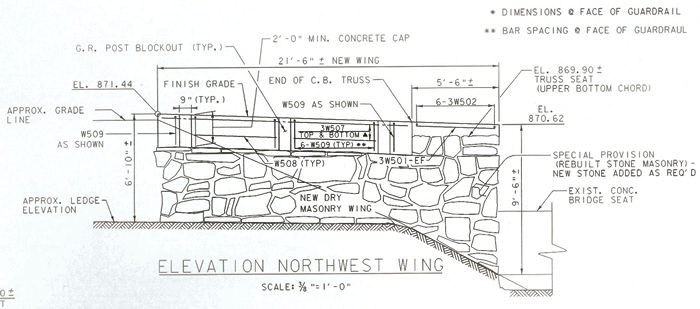 * DIMENSIONS @ FACE OF GUARDRAIL
** BAR SPACING @ FACE OF GUARDRAUL
2'-0" MIN. CONCRETE CAP
G.R. POST BLOCKOUT (TYP.)
21'-6" ± NEW WING
EL. 869.90 ±
TRUSS SEAT
(UPPER BOTTOM CHORD)
EL. 871.44
FINISH GRADE
END OF C.B. TRUSS
5'-6" ±
9" (TYP.)
W509 AS SHOWN
6-3W502
EL.
870.62
APPROX. GRADE
LINE
W509
AS SHOWN
3W507
TOP & BOTTOM
6-W509 (TYP) **
W508 (TYP)
3W501-EF
6'-10" ±
9'-6" ±
SPECIAL PROVISION
(REBUILT STONE MASONRY) -
NEW STONE ADDED AS REQ'D
NEW DRY
MASONRY WING
EXIST. CONC.
BRIDGE SEAT
APPROX. LEDGE
ELEVATION
ELEVATION NORTHWEST WING
SCALE: ⅜ "= 1'-0"